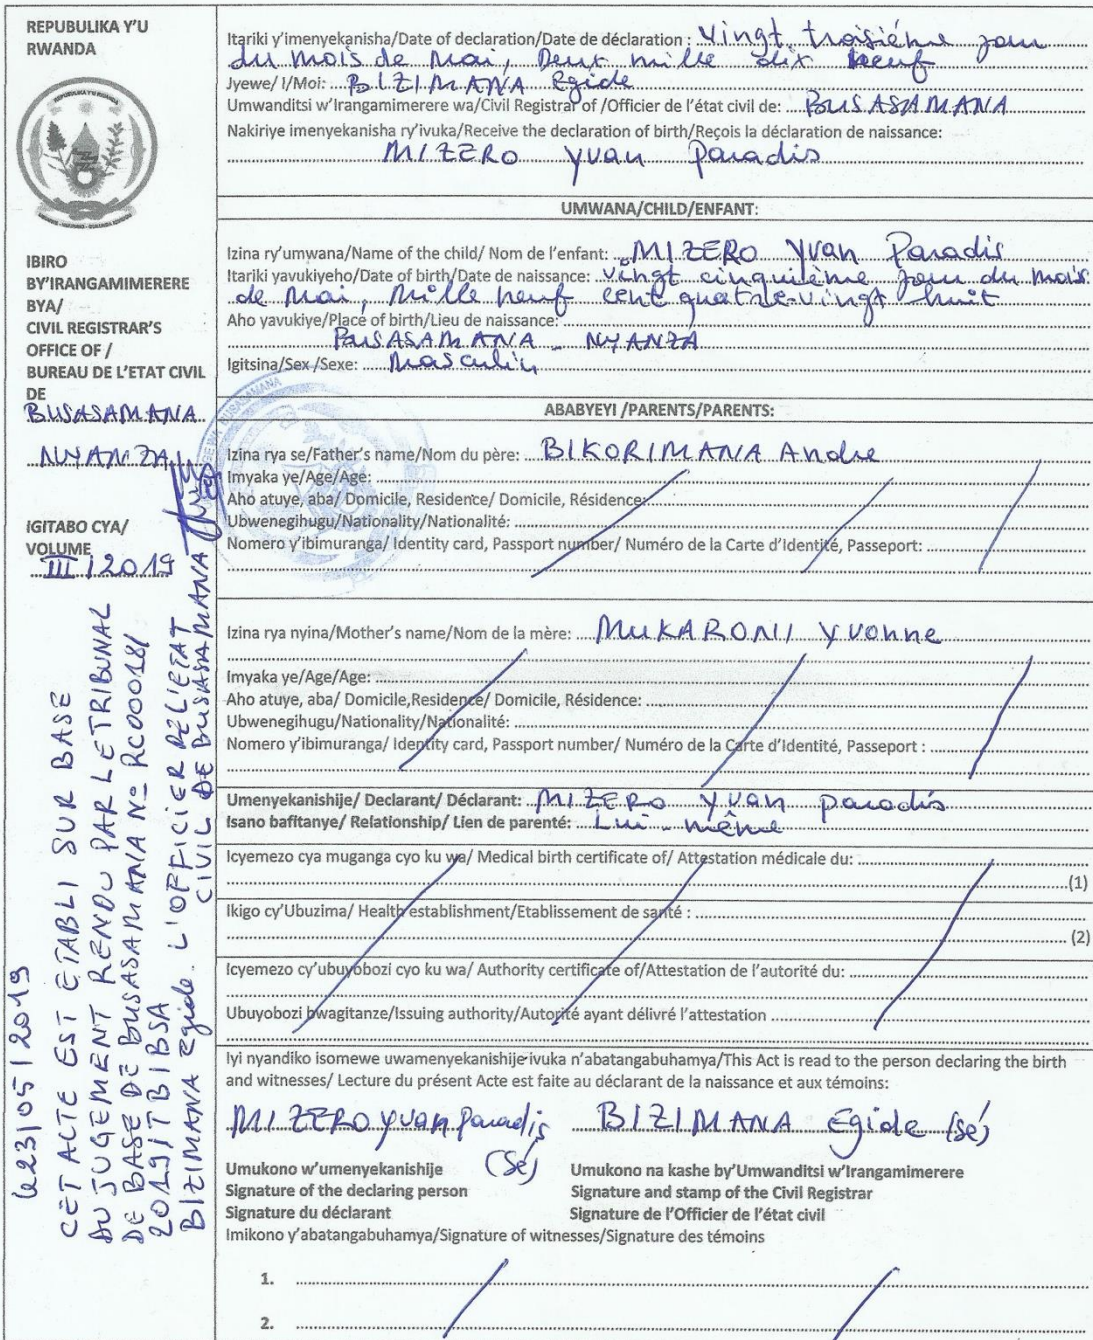 REPUBULIKA Y'U
RWANDA
IBIRO
BY'IRANGAMIMERERE
BYA/
CIVIL REGISTRAR'S
OFFICE OF /
BUREAU DE L'ETAT CIVIL
DE
BUSASAMANA
NYANZA
IGITABO CYA/
VOLUME
III / 2019
Le 23/05/2019
CET ACTE EST ETABLI SUR BASE
DU JUGEMENT RENDU PAR LE TRIBUNAL
DE BASE DE BUSASAMANA Nº RC00018/
2019/TB/BSA
BIZIMANA Egide. L'OFFICIER DE L'ETAT
CIVIL DE BUSASAMANA
Itariki y'imenyekanisha/Date of declaration/Date de déclaration : Vingt troisiéme jour
du mois de Mai, Deux mille dix neuf
Jyewe/ I/Moi: BIZIMANA Egide
Umwanditsi w'Irangamimerere wa/Civil Registrar of /Officier de l'état civil de: BUSASAMANA
Nakiriye imenyekanisha ry'ivuka/Receive the declaration of birth/Reçois la déclaration de naissance:
MIZERO Yvan Paradis
UMWANA/CHILD/ENFANT:
Izina ry'umwana/Name of the child/ Nom de l'enfant: MIZERO Yvan Paradis
Itariki yavukiyeho/Date of birth/Date de naissance: Vingt cinquième jour du mois
de Mai, Mille neuf cent quatre-vingt huit
Aho yavukiye/Place of birth/Lieu de naissance:
BUSASAMANA - NYANZA
Igitsina/Sex /Sexe: Masculin
ABABYEYI /PARENTS/PARENTS:
Izina rya se/Father's name/Nom du père: BIKORIMANA Andre
Imyaka ye/Age/Age:
Aho atuye, aba/ Domicile, Residence/ Domicile, Résidence:
Ubwenegihugu/Nationality/Nationalité:
Nomero y'ibimuranga/ Identity card, Passport number/ Numéro de la Carte d'Identité, Passeport:
Izina rya nyina/Mother's name/Nom de la mère: MUKARONII Yvonne
Imyaka ye/Age/Age:
Aho atuye, aba/ Domicile,Residence/ Domicile, Résidence:
Ubwenegihugu/Nationality/Nationalité:
Nomero y'ibimuranga/ Identity card, Passport number/ Numéro de la Carte d'Identité, Passeport :
Umenyekanishije/ Declarant/ Déclarant: MIZERO Yvan paradis
Isano bafitanye/ Relationship/ Lien de parenté: Lui-même
Icyemezo cya muganga cyo ku wa/ Medical birth certificate of/ Attestation médicale du:
(1)
Ikigo cy'Ubuzima/ Health establishment/Etablissement de santé :
(2)
Icyemezo cy'ubuyobozi cyo ku wa/ Authority certificate of/Attestation de l'autorité du:
Ubuyobozi bwagitanze/Issuing authority/Autorité ayant délivré l'attestation
Iyi nyandiko isomewe uwamenyekanishije ivuka n'abatangabuhamya/This Act is read to the person declaring the birth
and witnesses/ Lecture du présent Acte est faite au déclarant de la naissance et aux témoins:
MIZERO Yvan Paradis (Sé)
BIZIMANA Egide (sé)
Umukono w'umenyekanishije
Signature of the declaring person
Signature du déclarant
Umukono na kashe by'Umwanditsi w'Irangamimerere
Signature and stamp of the Civil Registrar
Signature de l'Officier de l'état civil
Imikono y'abatangabuhamya/Signature of witnesses/Signature des témoins
1.
2.